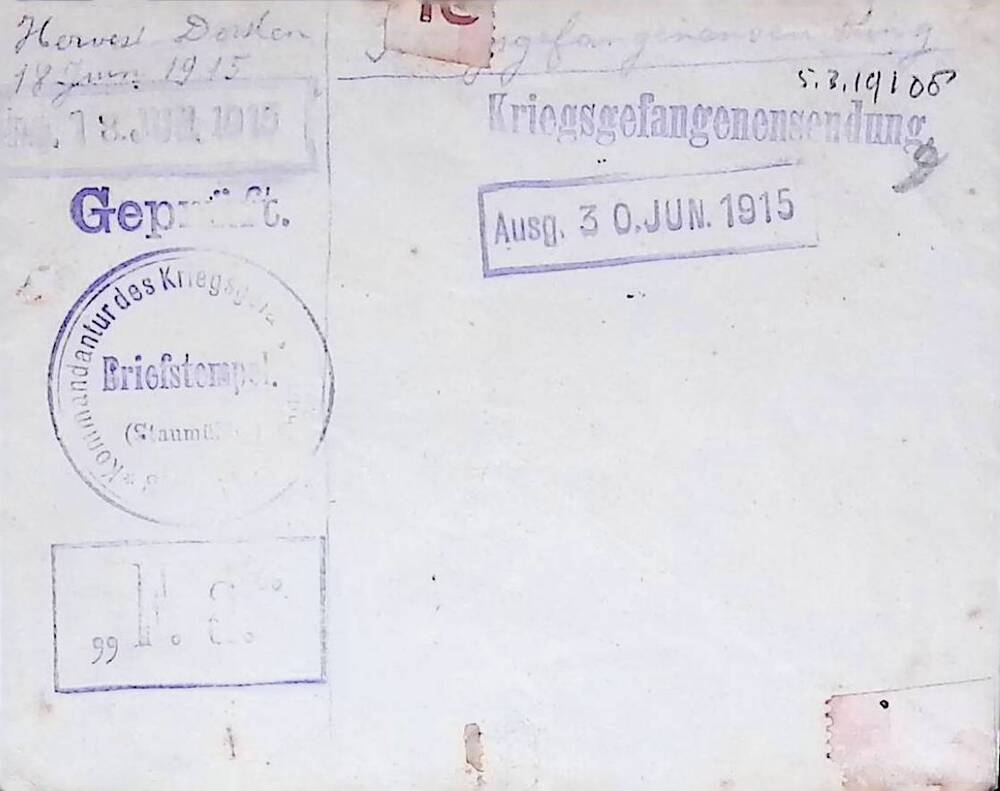 Hervest Dorsten
18 Jun 1915
18. JUN. 1915
Geprüft.
Kommandantur des Kriegsgefa
Briefstempel.
(Staumü
99 F. a.
Kriegsgefangenensendung
5.3.19106
Kriegsgefangenensendung
9
Ausg. 30. JUN. 1915